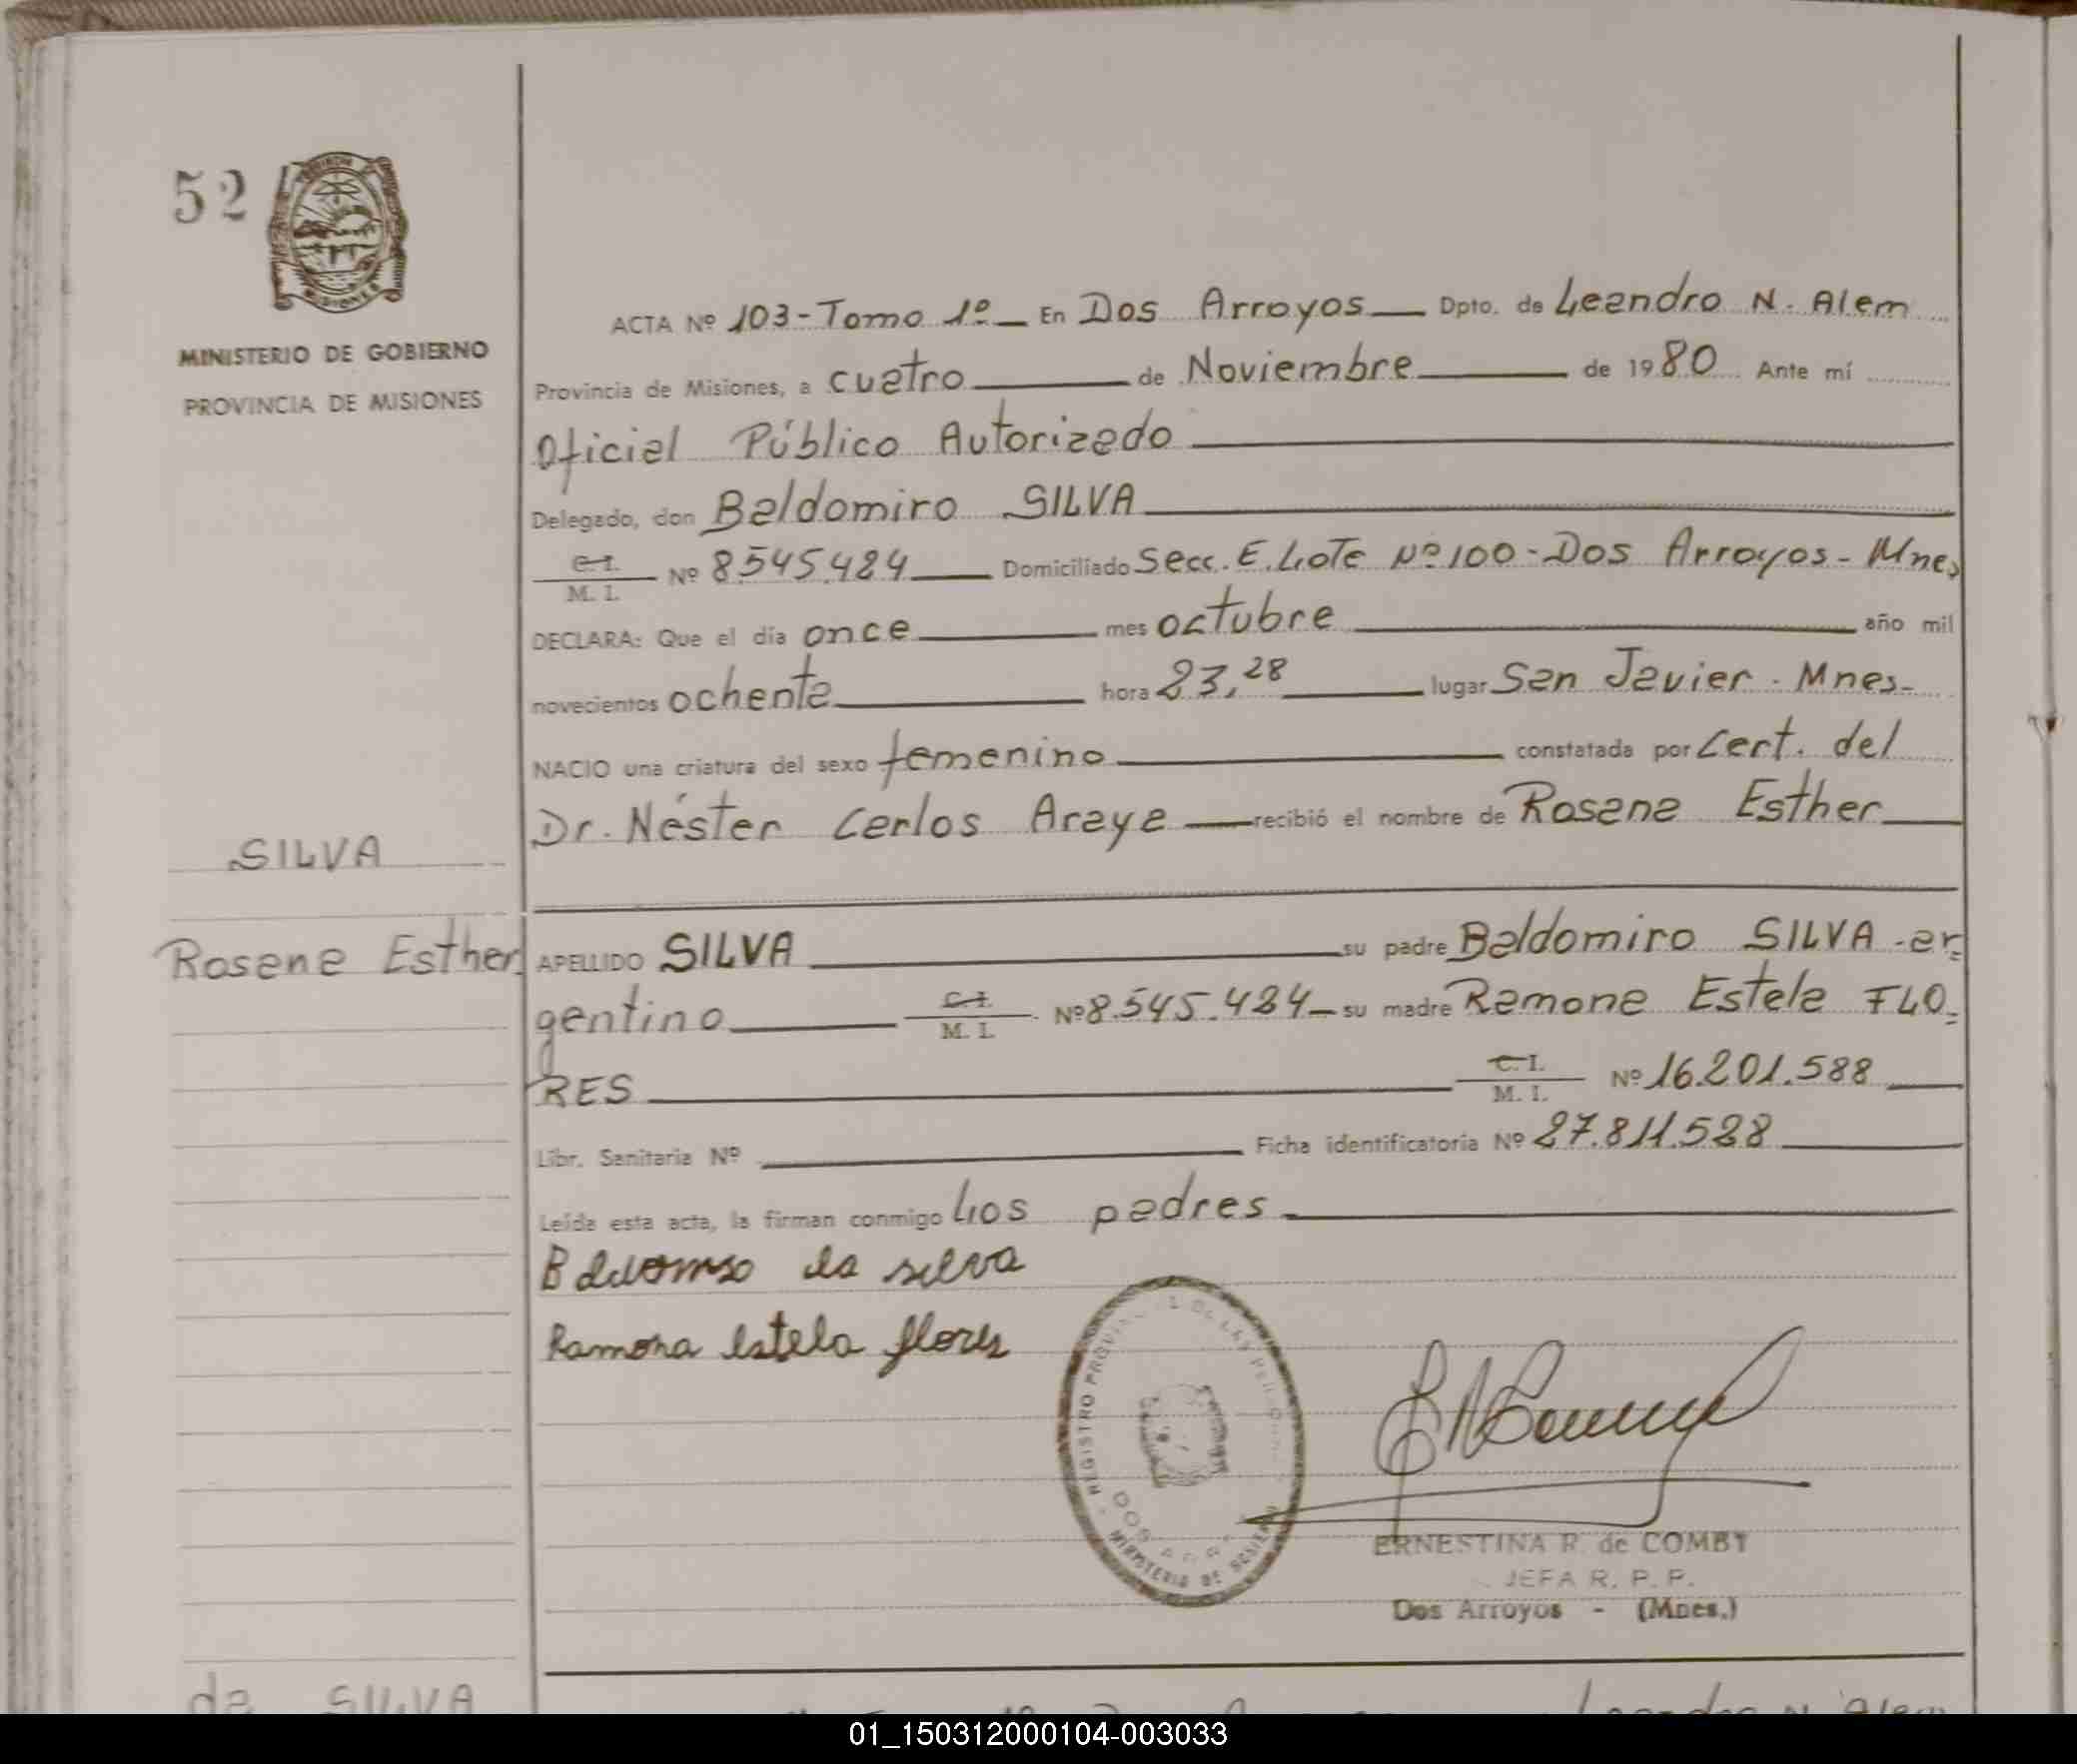 52
MINISTERIO DE GOBIERNO
PROVINCIA DE MISIONES
ACTA Nº 103-Tomo 1º En Dos Arroyos Dpto. de Leandro N. Alem
Provincia de Misiones, a cuatro de Noviembre de 1980 Ante mí
Oficial Público Autorizado
Delegado, don Baldomiro SILVA
C.I.
M. I. Nº 8.545.484 Domiciliado Secc. E. Lote Nº 100-Dos Arroyos-Mnes
DECLARA: Que el día once mes octubre año mil
novecientos ochenta hora 23,28 lugar San Javier. Mnes-
NACIO una criatura del sexo femenino constatada por Cert. del
Dr. Néster Carlos Araya recibió el nombre de Rosana Esther
SILVA
Rosana Esther
APELLIDO SILVA su padre Baldomiro SILVA -ar
gentino C.I. M. I. Nº 8.545.484 su madre Ramona Estela FLO
RES C.I. M. I. Nº 16.201.588
Libr. Sanitaria Nº Ficha identificatoria Nº 27.811.528
Leída esta acta, la firman conmigo Los padres
da silva
Ramona estela flores
REGISTRO DE LAS
MINISTERIO DE GOBIERNO
DOS
ERNESTINA R. de COMBY
JEFA R. P. P.
Dos Arroyos - (Mnes.)
da SILVA
Leandro N. Alem
01_150312000104-003033